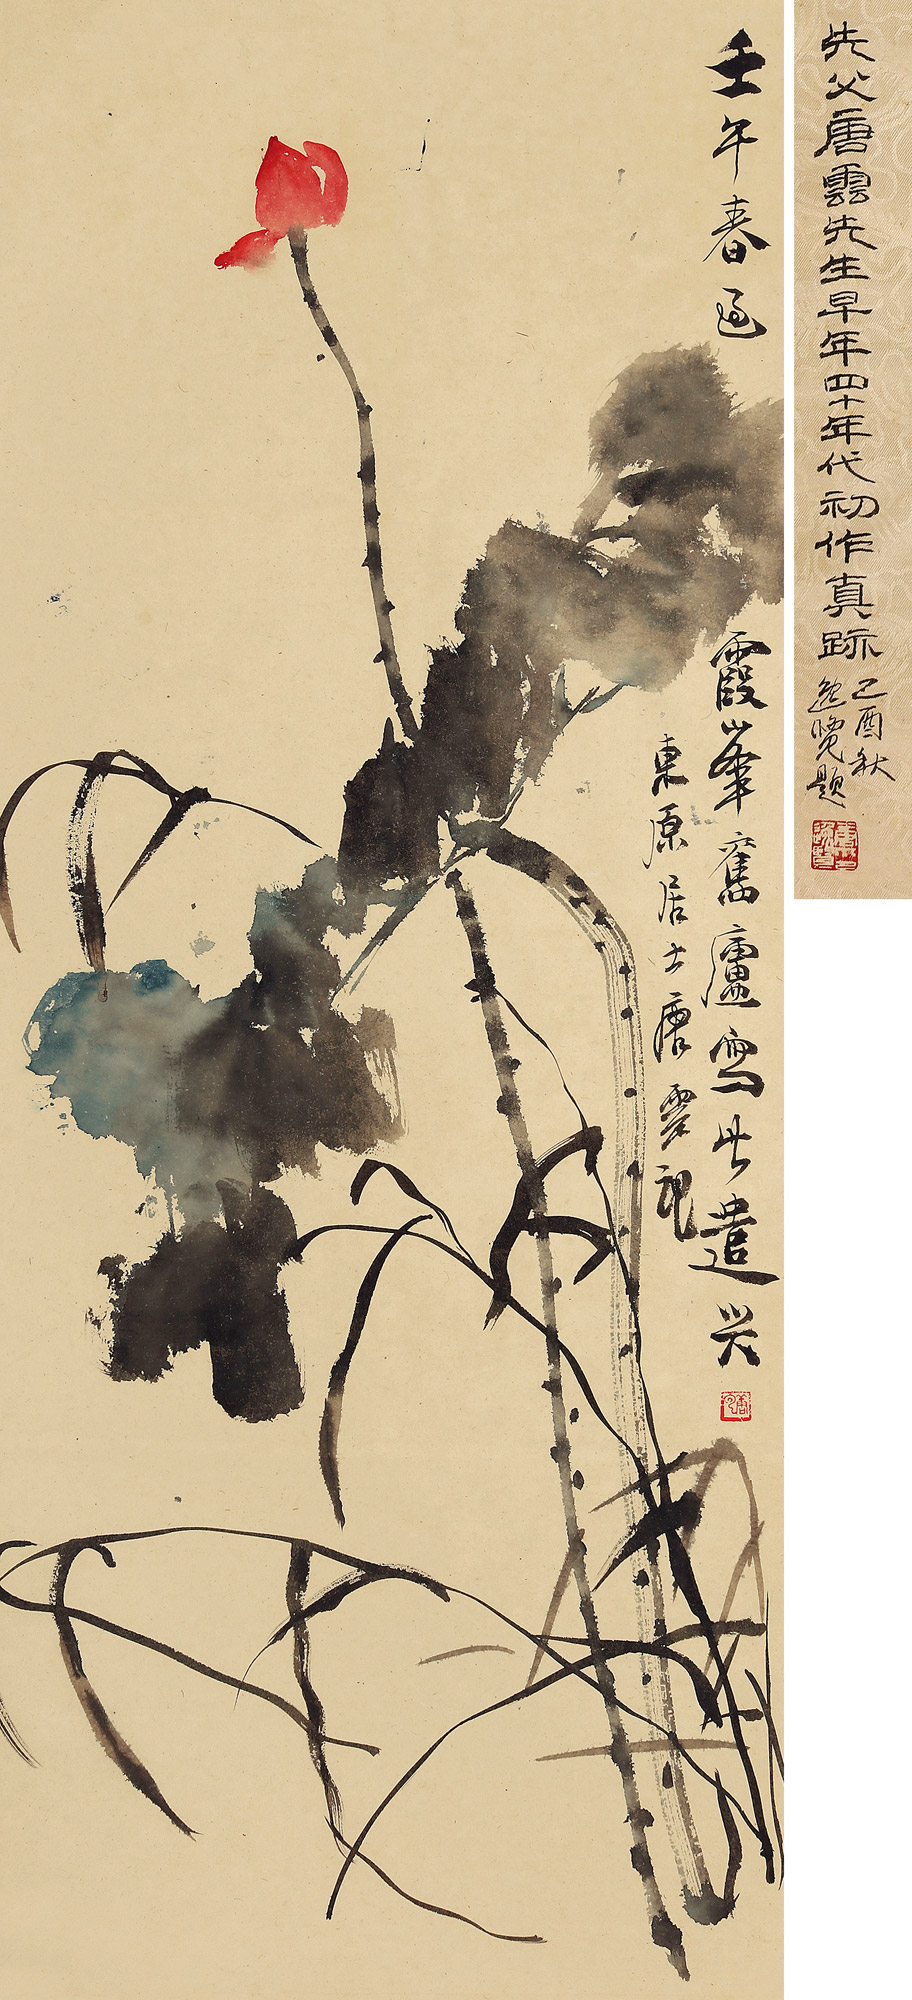 壬午春過
霞峯舊廬寫此遣興
東原居士唐雲記
先父唐雲先生早年四十年代初作真跡
己酉秋
逸覽題